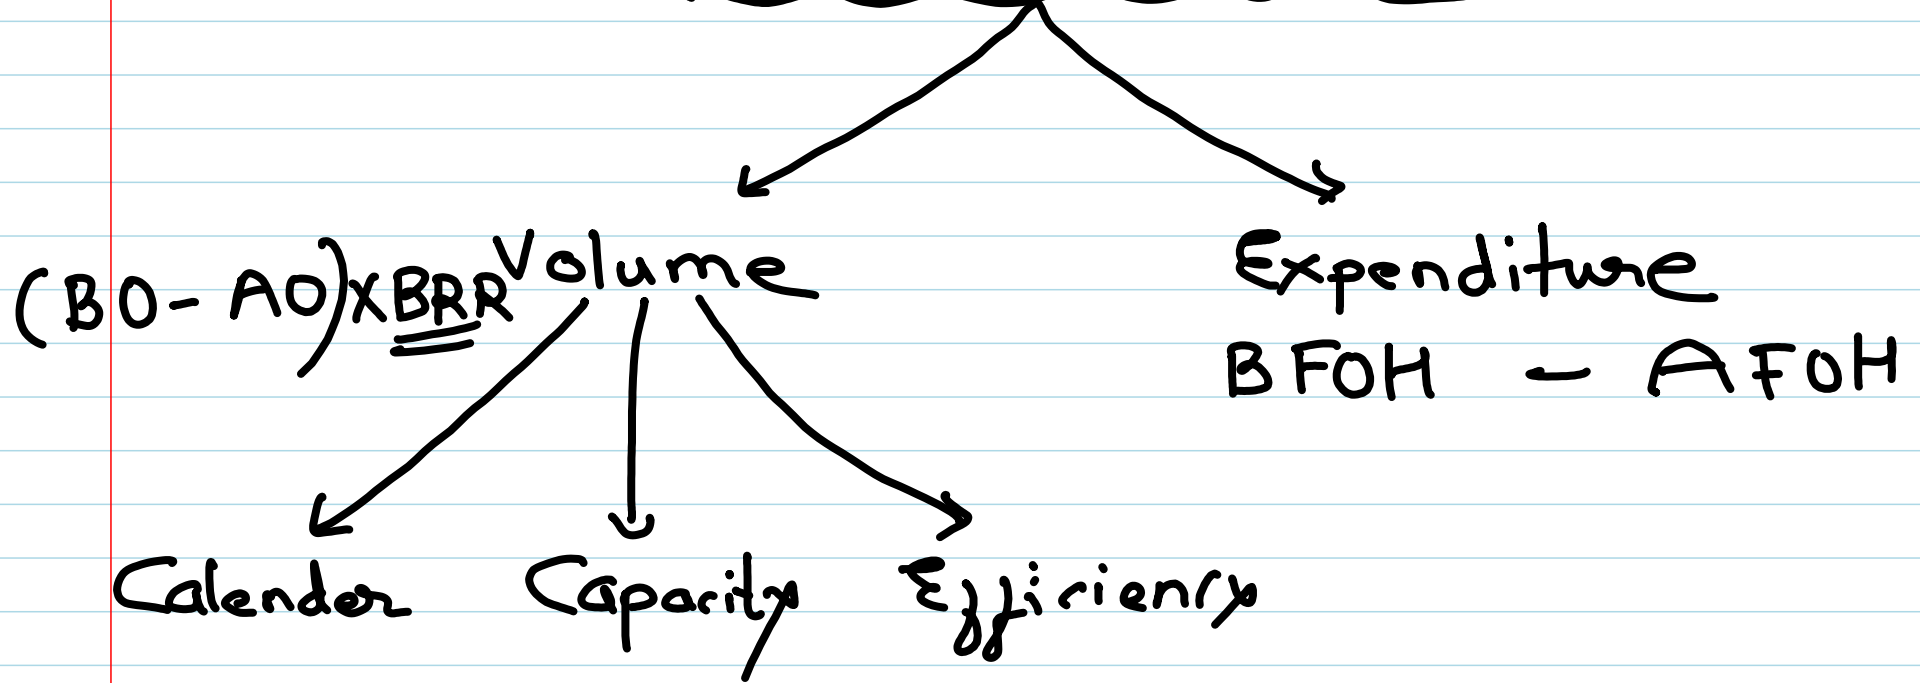 (BO - AO) X BRR Volume Expenditure
BFOH - AFOH
Calender Capacity Efficiency